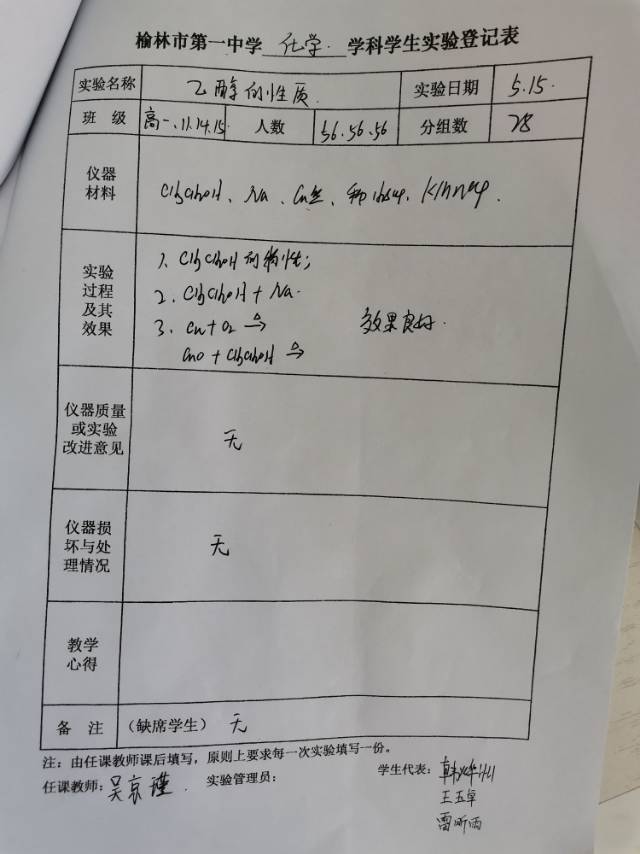 榆林市第一中学 化学 学科学生实验登记表
实验名称 乙醇的性质 实验日期 5.15.
班 级 高一、11.14.15. 人数 56.56.56 分组数 28
仪器
材料
CH3CH2OH、Na、Cu丝、稀H2SO4、KMnO4.
实验
过程
及其
效果
1. CH3CH2OH的物性;
2. CH3CH2OH + Na.
3. Cu + O2 △⇒ 效果良好.
CuO + CH3CH2OH △⇒
仪器质量
或实验
改进意见
无
仪器损
坏与处
理情况
无
教学
心得
备 注 (缺席学生) 无
注:由任课教师课后填写,原则上要求每一次实验填写一份。
任课教师:吴京瑾. 实验管理员: 学生代表:
王五卓
雷昕雨